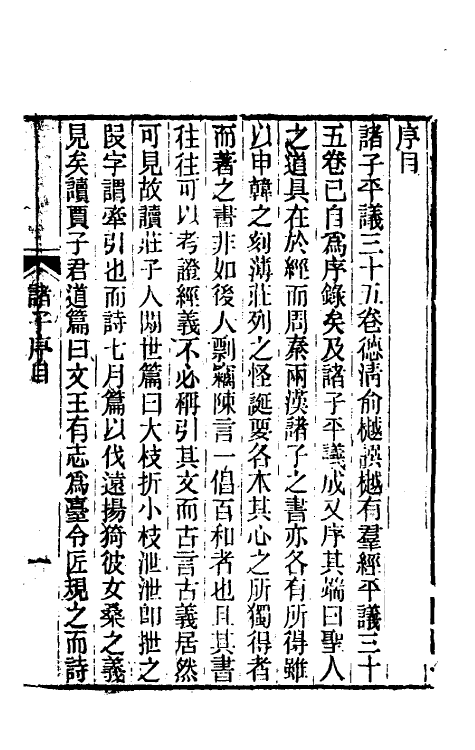 序目
諸子平議三十五卷德淸俞樾譔樾有羣經平議三十
五卷已自爲序錄矣及諸子平議成又序其端曰聖人
之道具在於經而周秦兩漢諸子之書亦各有所得雖
以申韓之刻薄莊列之怪誕要各本其心之所獨得者
而著之書非如後人剽竊陳言一倡百和者也且其書
往往可以考證經義不必稱引其文而古言古義居然
可見故讀莊子人閒世篇曰大枝折小枝泄泄卽抴之
叚字謂牽引也而詩七月篇以伐遠揚猗彼女桑之義
見矣讀賈子君道篇曰文王有志爲臺令匠規之而詩
諸子序目
一